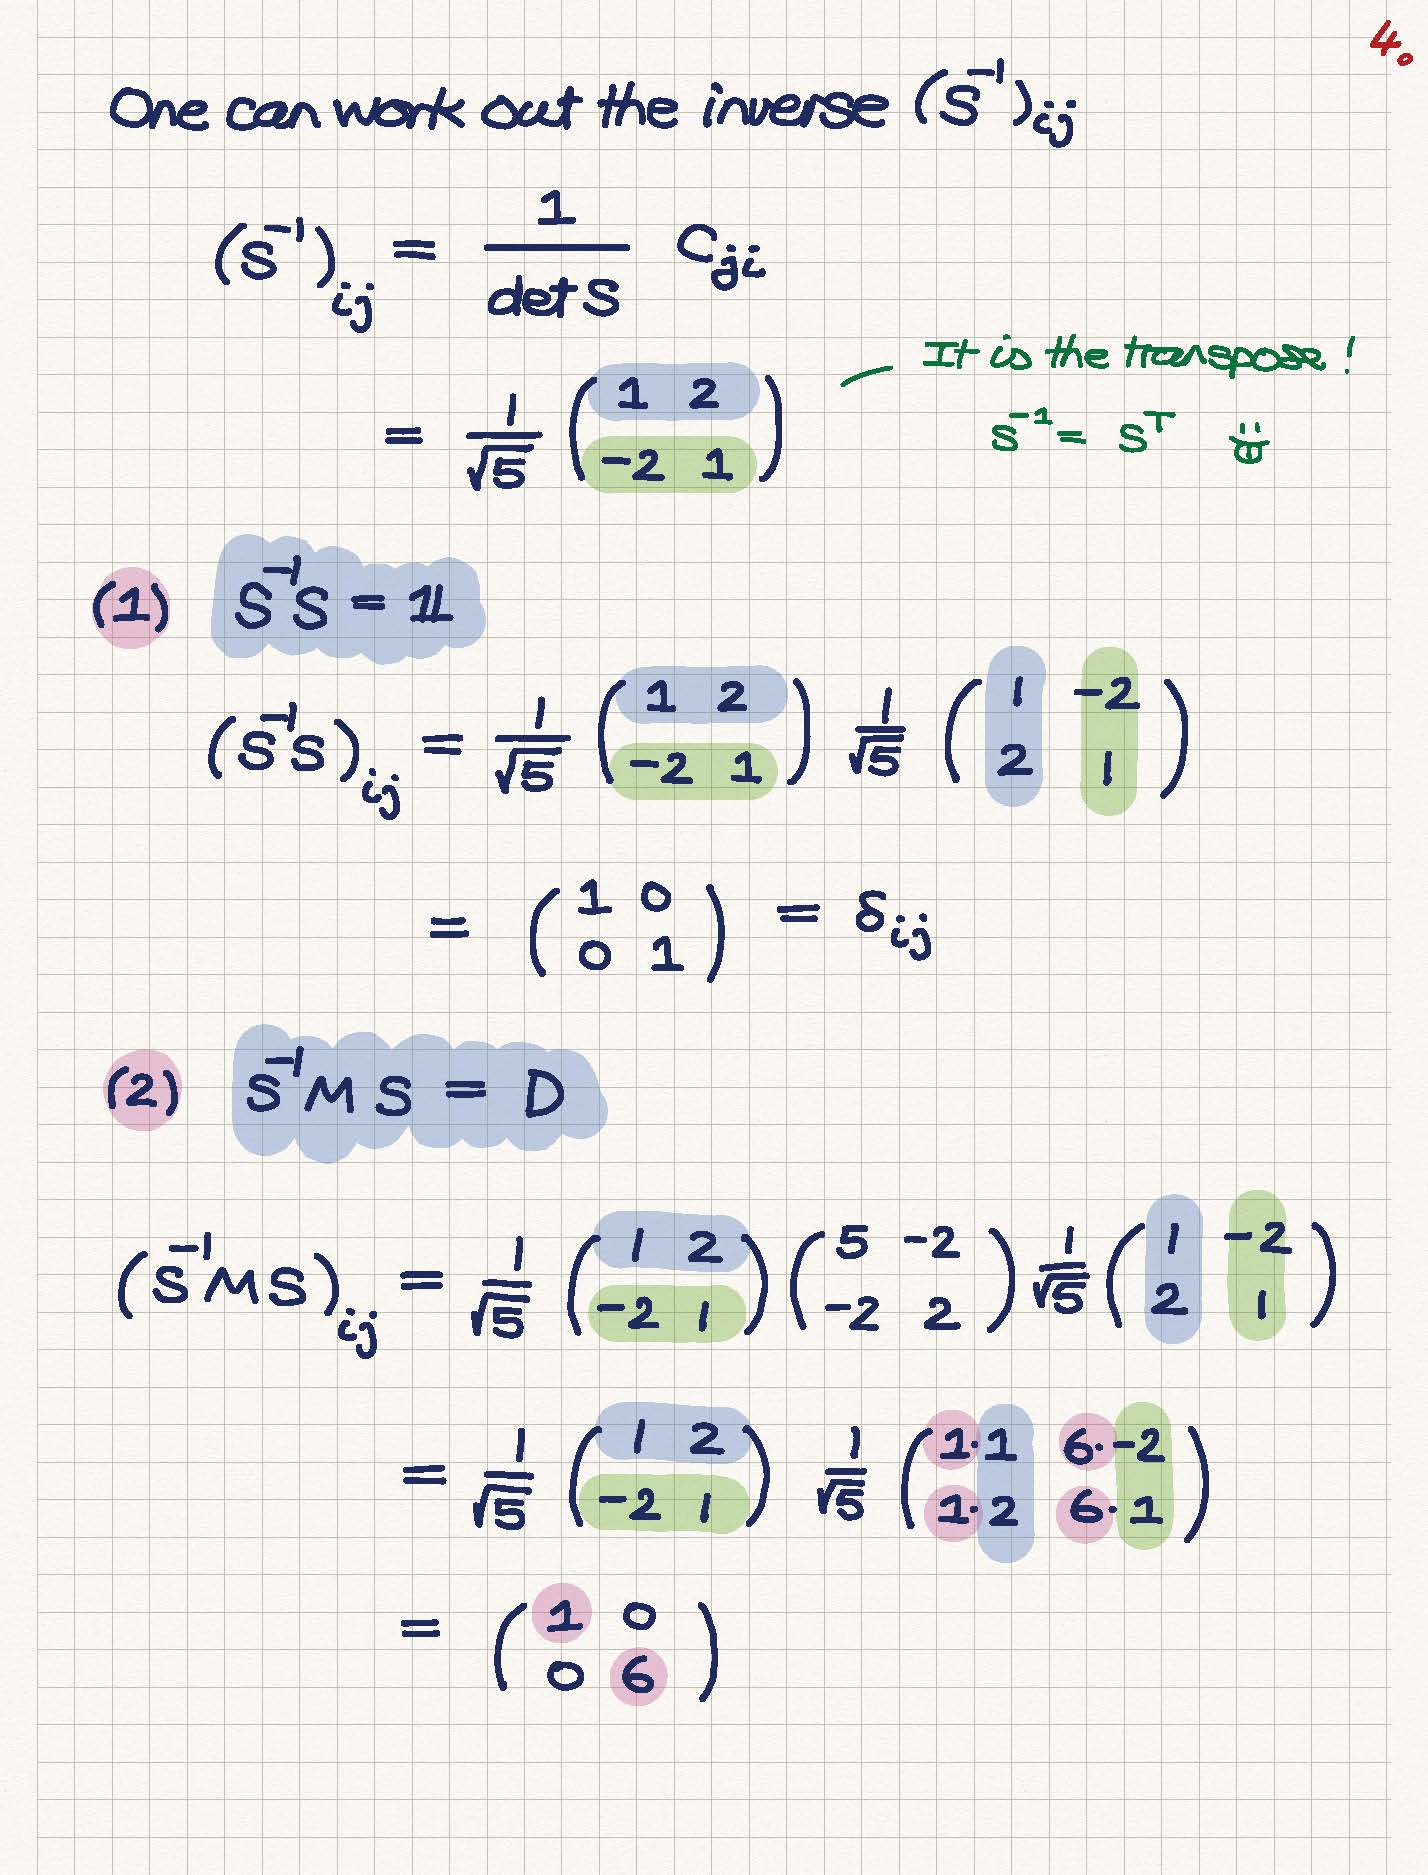 4.
One can work out the inverse (S⁻¹)ᵢⱼ
(S⁻¹)ᵢⱼ = 1 / det S Cⱼᵢ
It is the transpose!
= 1/√5 ( 1 2 ; -2 1 )
S⁻¹ = Sᵀ
(1) S⁻¹S = 1L
(S⁻¹S)ᵢⱼ = 1/√5 ( 1 2 ; -2 1 ) 1/√5 ( 1 -2 ; 2 1 )
= ( 1 0 ; 0 1 ) = δᵢⱼ
(2) S⁻¹MS = D
(S⁻¹MS)ᵢⱼ = 1/√5 ( 1 2 ; -2 1 ) ( 5 -2 ; -2 2 ) 1/√5 ( 1 -2 ; 2 1 )
= 1/√5 ( 1 2 ; -2 1 ) 1/√5 ( 1·1 6·-2 ; 1·2 6·1 )
= ( 1 0 ; 0 6 )